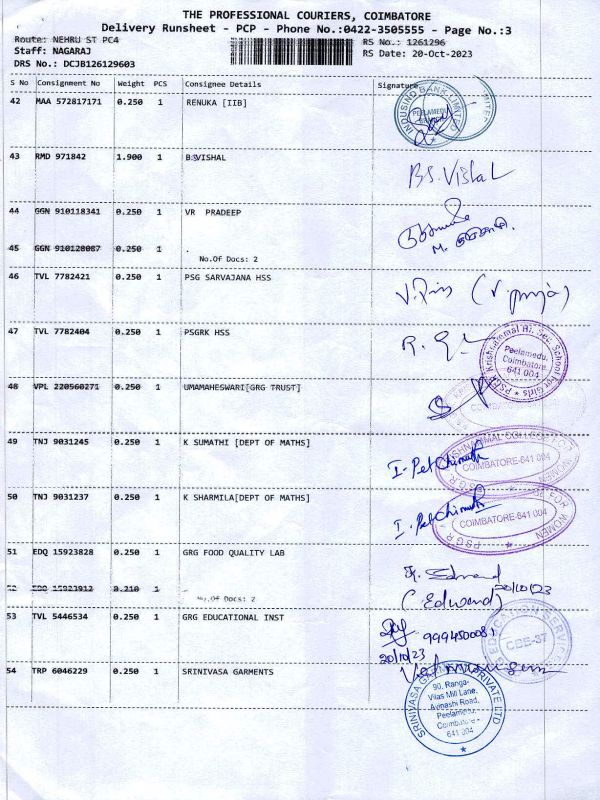 THE PROFESSIONAL COURIERS, COIMBATORE
Delivery Runsheet - PCP - Phone No.:0422-3505555 - Page No.:3
Route: NEHRU ST PC4 RS No.: 1261296
Staff: NAGARAJ RS Date: 20-Oct-2023
DRS No.: DCJB126129603
S No Consignment No Weight PCS Consignee Details Signature
42 MAA 572817171 0.250 1 RENUKA [IIB]
INDUSIND BANK LIMITED
43 RMD 971842 1.900 1 B.S.VISHAL B.S. Vishal
44 GGN 910118341 0.250 1 VR PRADEEP
45 GGN 910128087 0.250 1 .
No.Of Docs: 2
46 TVL 7782421 0.250 1 PSG SARVAJANA HSS
47 TVL 7782404 0.250 1 PSGRK HSS
PSGR Krishnammal Hr. Sec. School For Girls
Peelamedu,
Coimbatore
641 004
48 VPL 220560271 0.250 1 UMAMAHESWARI[GRG TRUST]
49 TNJ 9031245 0.250 1 K SUMATHI [DEPT OF MATHS]
COIMBATORE-641 004
50 TNJ 9031237 0.250 1 K SHARMILA[DEPT OF MATHS]
COIMBATORE-641 004
51 EDQ 15923828 0.250 1 GRG FOOD QUALITY LAB
20/10/23
52 EDQ 15923912 0.210 1 .
No.Of Docs: 2
(Edward)
53 TVL 5446534 0.250 1 GRG EDUCATIONAL INST
20/10/23
CBE-37
54 TRP 6046229 0.250 1 SRINIVASA GARMENTS
SRINIVASA GARMENTS PRIVATE LTD
90, Ranga-
Vilas Mill Lane,
Avinashi Road,
Peelamedu,
Coimbatore -
641 004